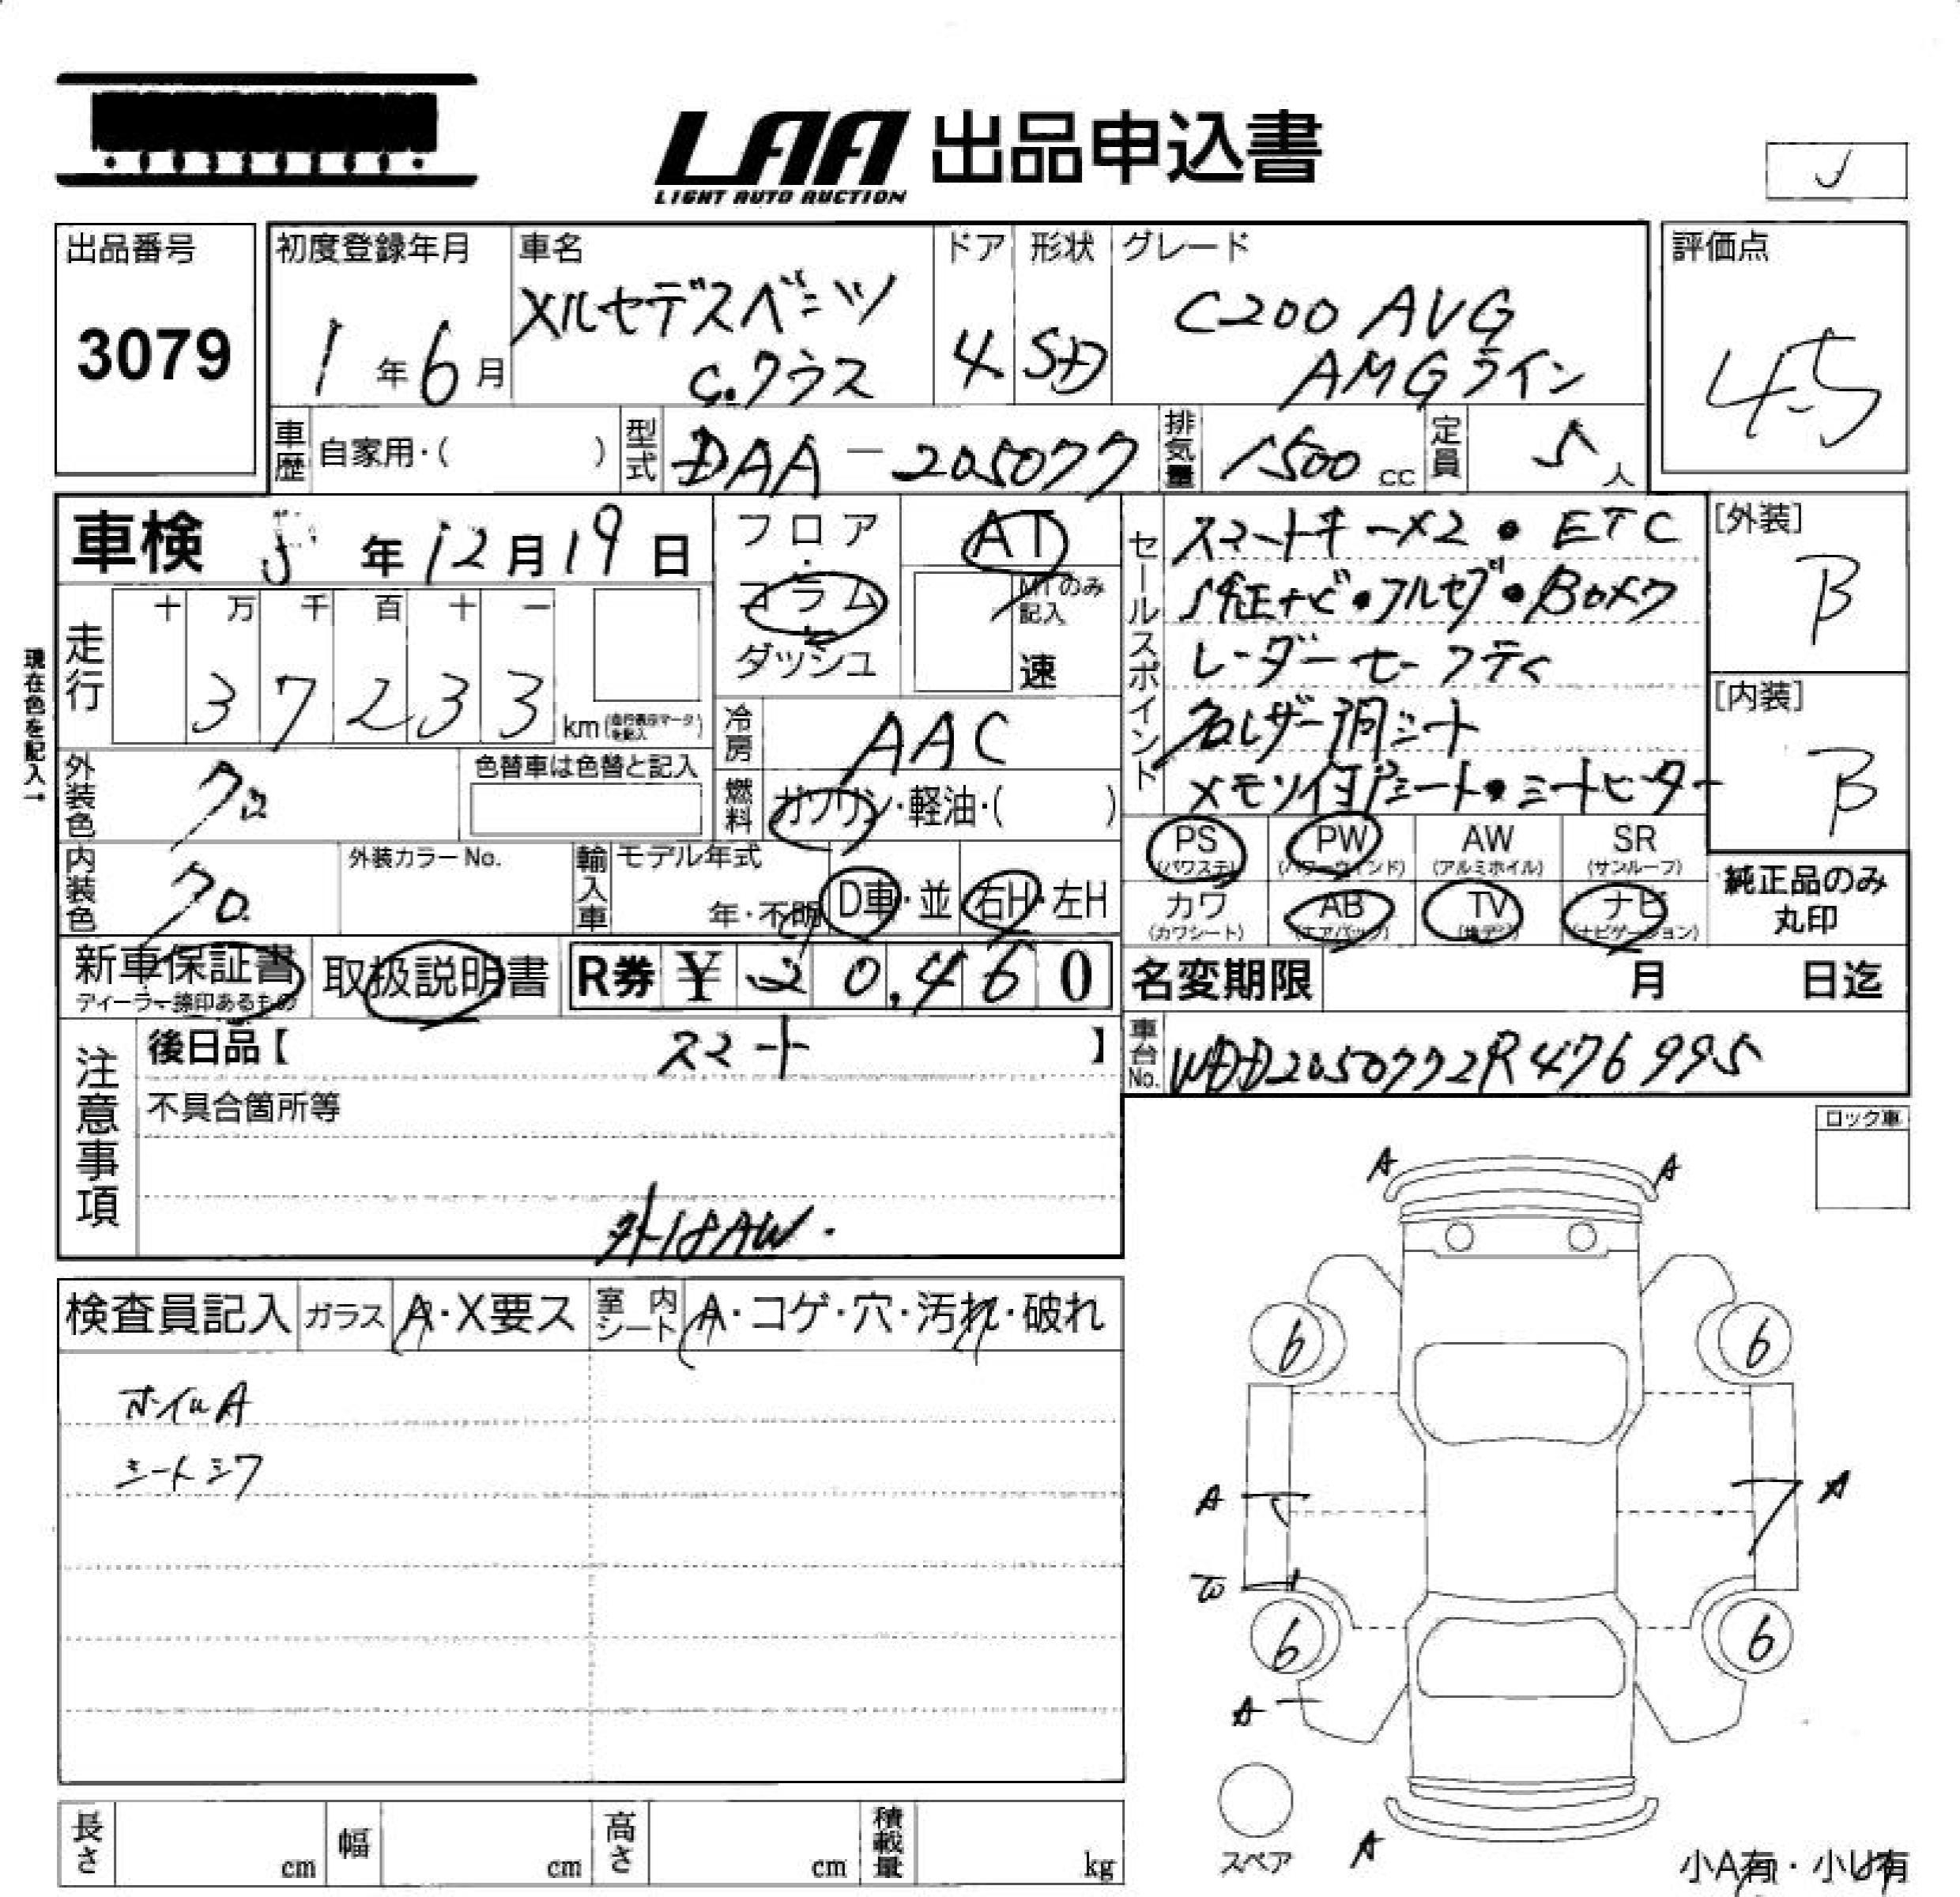 LAA 出品申込書
LIGHT AUTO AUCTION
出品番号
3079
初度登録年月
1年6月
車名
メルセデスベンツ
C.クラス
ドア
4
形状
SD
グレード
C200 AVG
AMGライン
評価点
4.5
車歴
自家用・( )
型式
DAA-205077
排気量
1500cc
定員
5人
車検 5年12月19日
フロア・コラム・ダッシュ
AT
MTのみ記入
速
セールスポイント
スマートキーX2・ETC
純正ナビ・フルセグ・Bカメラ
レーダーセーフティ
黒レザー調シート
メモリ付Pシート・シートヒーター
[外装]
B
[内装]
B
現在色を記入→
走行
十万千百十一
37233
km(走行表示マークを記入)
冷房
AAC
外装色
クロ
色替車は色替と記入
燃料
ガソリン・軽油・( )
内装色
クロ
外装カラーNo.
輸入車
モデル年式
年・不明
D車・並
右H・左H
PS (パワステ)
PW (パワーウィンド)
AW (アルミホイル)
SR (サンルーフ)
カワ (カワシート)
AB (エアバッグ)
TV (地デジ)
ナビ (ナビゲーション)
純正品のみ丸印
新車保証書
ディーラー捺印あるもの
取扱説明書
R券 ¥20,460
名変期限 月 日迄
注意事項
後日品【 スマート 】
車台No.
WDD2050772R476995
不具合箇所等
外18AW.
ロック車
検査員記入
ガラス A・X要ス
室内シート A・コゲ・穴・汚れ・破れ
ホイルA
シートシワ
A A
6 6
A A
6 6
A
A
スペア
小A有・小U有
長さ cm
幅 cm
高さ cm
積載量 kg